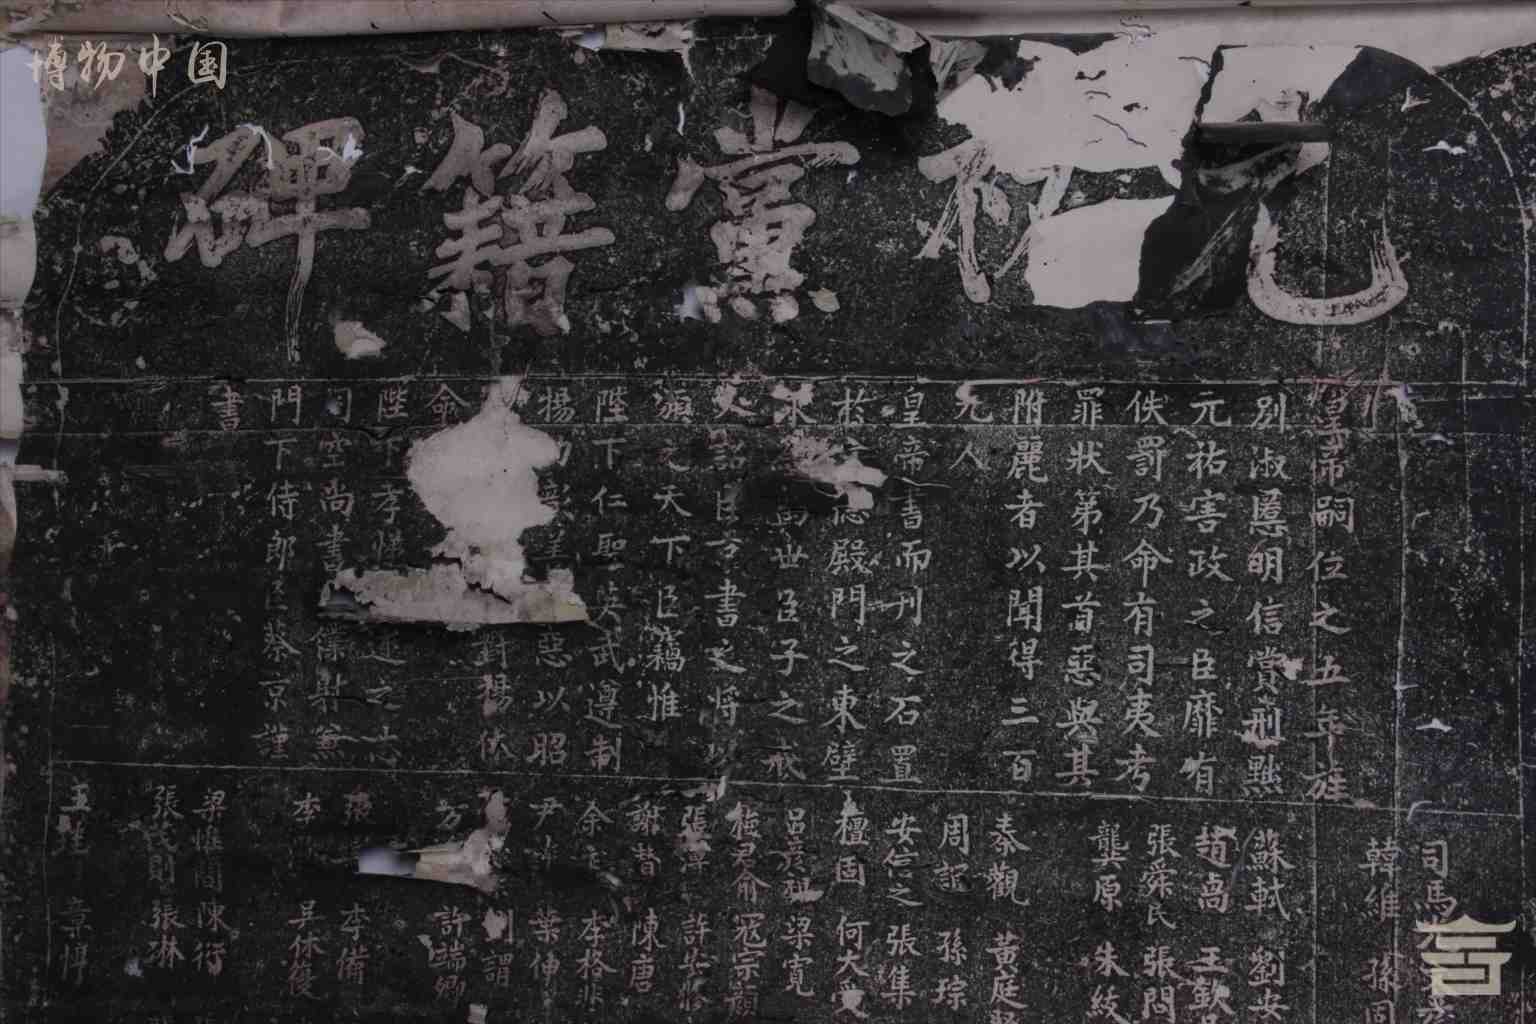 博物中国
元祐黨籍碑
皇帝嗣位之五年旌
別淑慝明信賞刑黜
元祐害政之臣靡有
佚罰乃命有司夷考
罪狀第其首惡與其
附麗者以聞得三百
九人
皇帝書而刊之石置
於文德殿門之東壁
永為萬世臣子之戒
又詔臣京書之將以
頒之天下臣竊惟
陛下仁聖英武遵制
揚功彰善惡以昭
命
陛下孝悌述之志
司空尚書僕射兼
門下侍郎臣蔡京謹
書
司馬光
韓維 孫固
蘇軾 劉安
趙卨 王欽
張舜民 張問
龔原 朱紱
秦觀 黃庭
周誼 孫琮
安信之 張集
檀固 何大受
呂彥祖 梁寬
梅君俞 寇宗顏
張溥 許安修
謝替 陳唐
余 李格非
尹 葉伸
劉謂
方 許端卿
張 李備
李 吳休復
梁惟簡 陳衍
張茂則 張琳
王珪 章惇